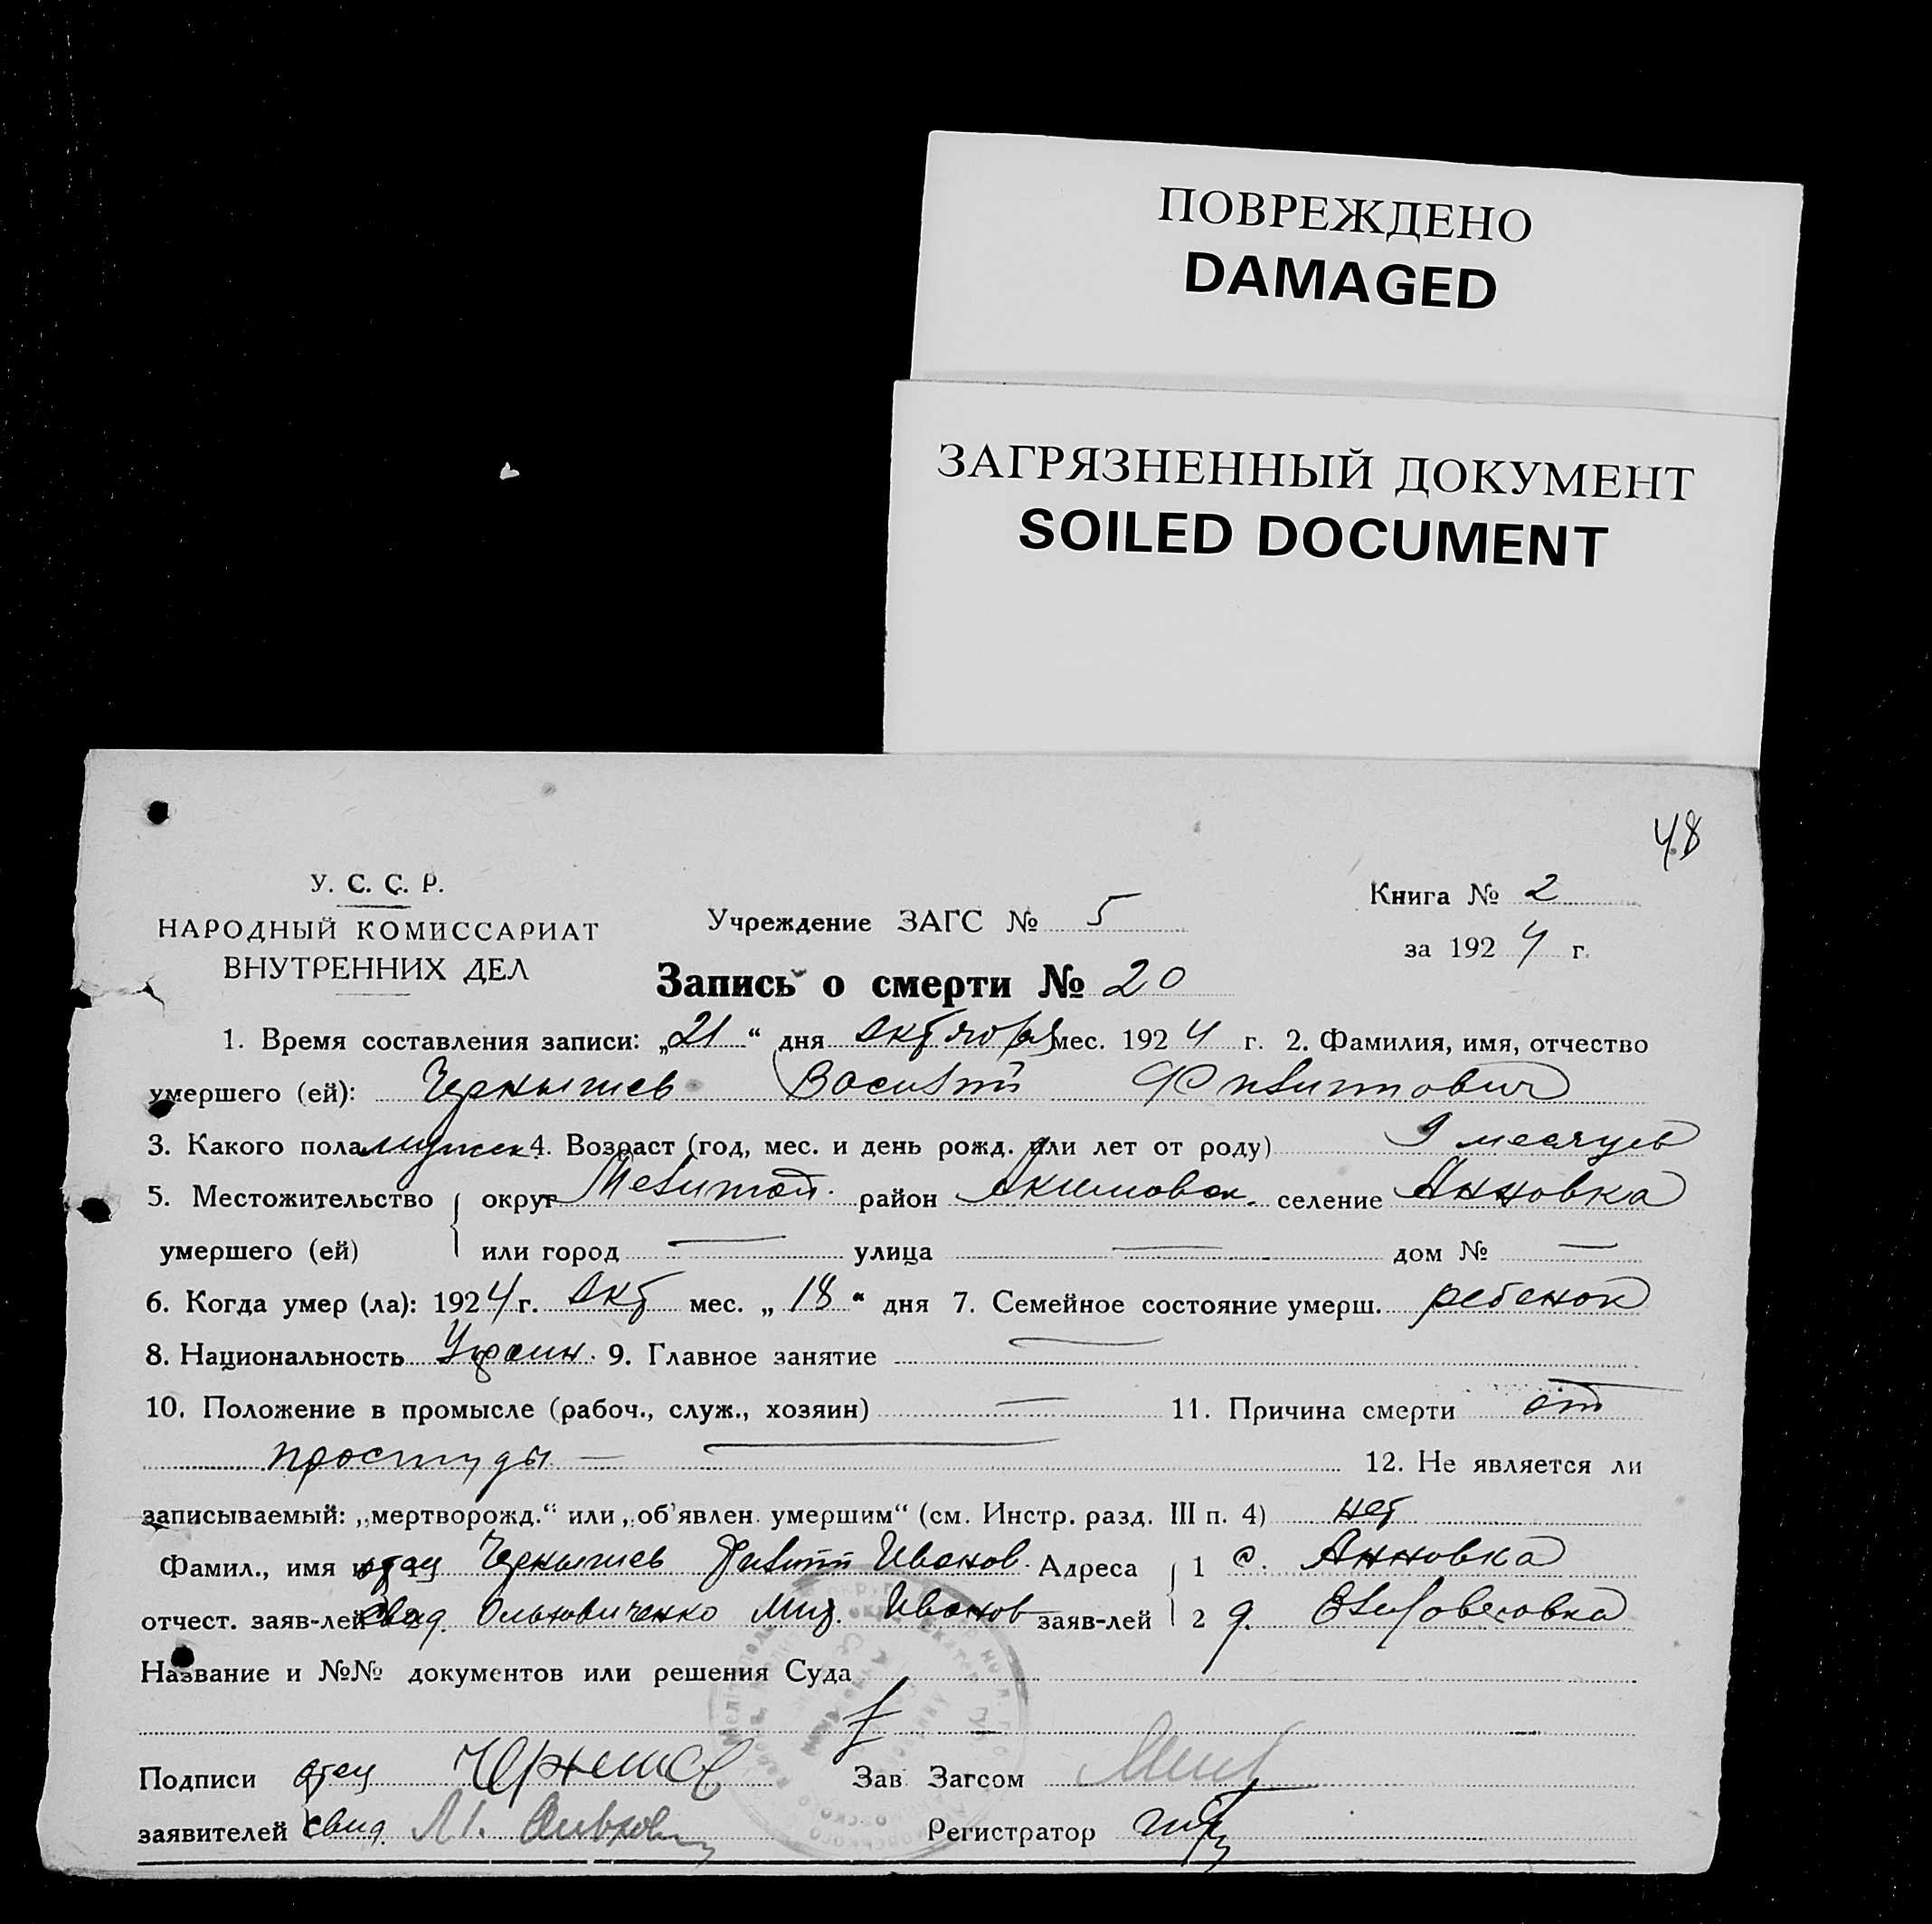 ПОВРЕЖДЕНО
DAMAGED
ЗАГРЯЗНЕННЫЙ ДОКУМЕНТ
SOILED DOCUMENT
48
У. С. С. Р.
НАРОДНЫЙ КОМИССАРИАТ
ВНУТРЕННИХ ДЕЛ
Учреждение ЗАГС № 5
Книга № 2
за 1924 г.
Запись о смерти № 20
1. Время составления записи: „21“ дня Октября мес. 1924 г. 2. Фамилия, имя, отчество
умершего (ей): Чернышев Василий Филиппович
3. Какого пола мужск 4. Возраст (год, мес. и день рожд. или лет от роду) 9 месяцев
5. Местожительство округ Мелитоп. район Акимовск. селение Анновка
умершего (ей) или город — улица — дом № —
6. Когда умер (ла): 1924 г. Окт мес. „18“ дня 7. Семейное состояние умерш. ребенок
8. Национальность Украин. 9. Главное занятие —
10. Положение в промысле (рабоч., служ., хозяин) — 11. Причина смерти от
простуды — 12. Не является ли
записываемый: „мертворожд.“ или „об'явлен умершим“ (см. Инстр. разд. III п. 4) нет
Фамил., имя и отец Чернышев Филипп Иванов. Адреса 1 с. Анновка
отчест. заяв-лей свид. Ольховиченко Иванов заяв-лей 2 д. Елизоветовка
Название и №№ документов или решения Суда
Подписи отец Чернишев Зав Загсом
заявителей свид. Регистратор